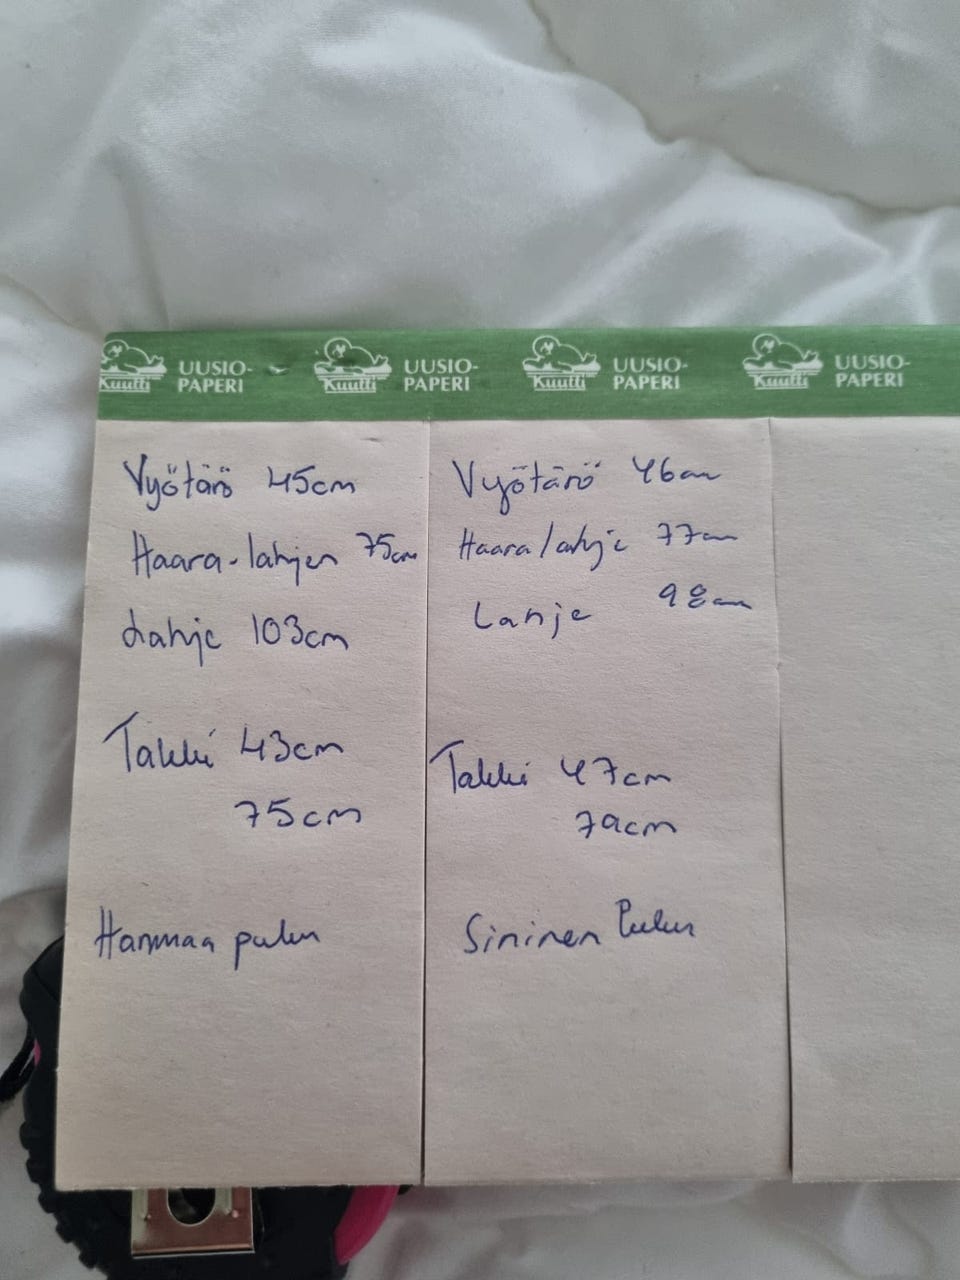 Kuutti UUSIO-PAPERI Kuutti UUSIO-PAPERI Kuutti UUSIO-PAPERI Kuutti UUSIO-PAPERI
Vyötärö 45cm
Haara-lahjen 75cm
Lahje 103cm
Takki 43cm
75cm
Harmaa puku
Vyötärö 46cm
Haara/lahje 77cm
Lahje 98cm
Takki 47cm
79cm
Sininen Puku